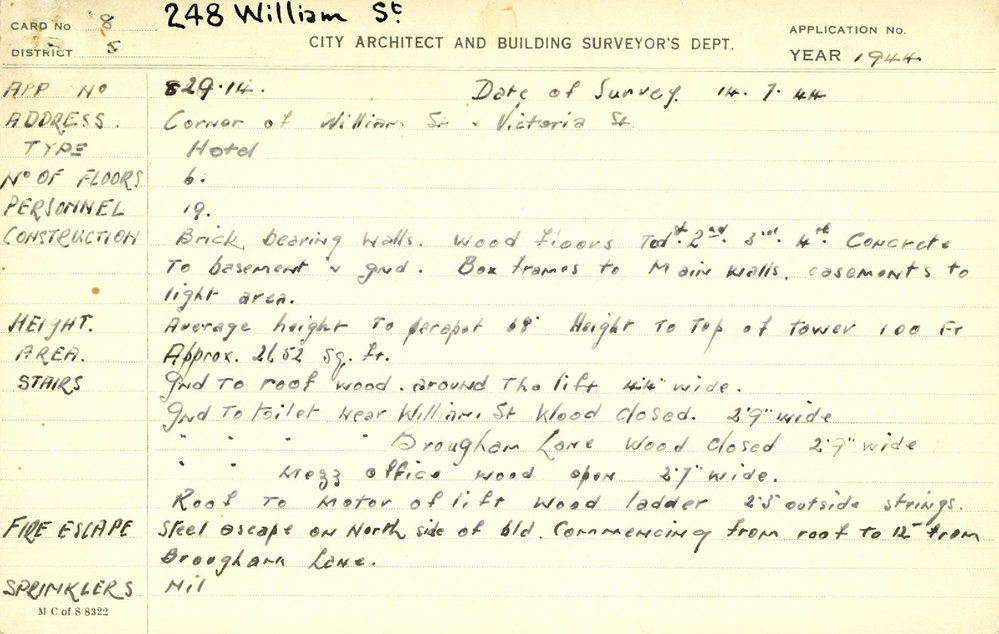 248 William St.
CARD No 8
DISTRICT 5
CITY ARCHITECT AND BUILDING SURVEYOR'S DEPT.
APPLICATION No.
YEAR 1944.
APP No 829.14. Date of Survey. 14. 7. 44
ADDRESS. Corner of William St & Victoria St.
TYPE Hotel
No OF FLOORS 6.
PERSONNEL 19.
CONSTRUCTION Brick bearing walls. Wood floors To 1st. 2nd. 3rd. 4th. Concrete
To basement & gnd. Box frames to Main walls, casements to
light area.
HEIGHT. Average height To parapet 68' Height To Top of tower 100 Ft
AREA. Approx. 2652 sq. ft.
STAIRS gnd To roof wood. around the lift 4'4" wide.
gnd To toilet near William St Wood Closed. 2'9" wide
" " " " Brougham Lane Wood Closed 2'9" wide
" " Mezz office wood open 2'7" wide.
Roof To Motor of lift Wood ladder 2'3" outside strings.
FIRE ESCAPE Steel escape on North side of bld. Commencing from roof To 12' from
Brougham Lane.
SPRINKLERS Nil
M C of S 8322